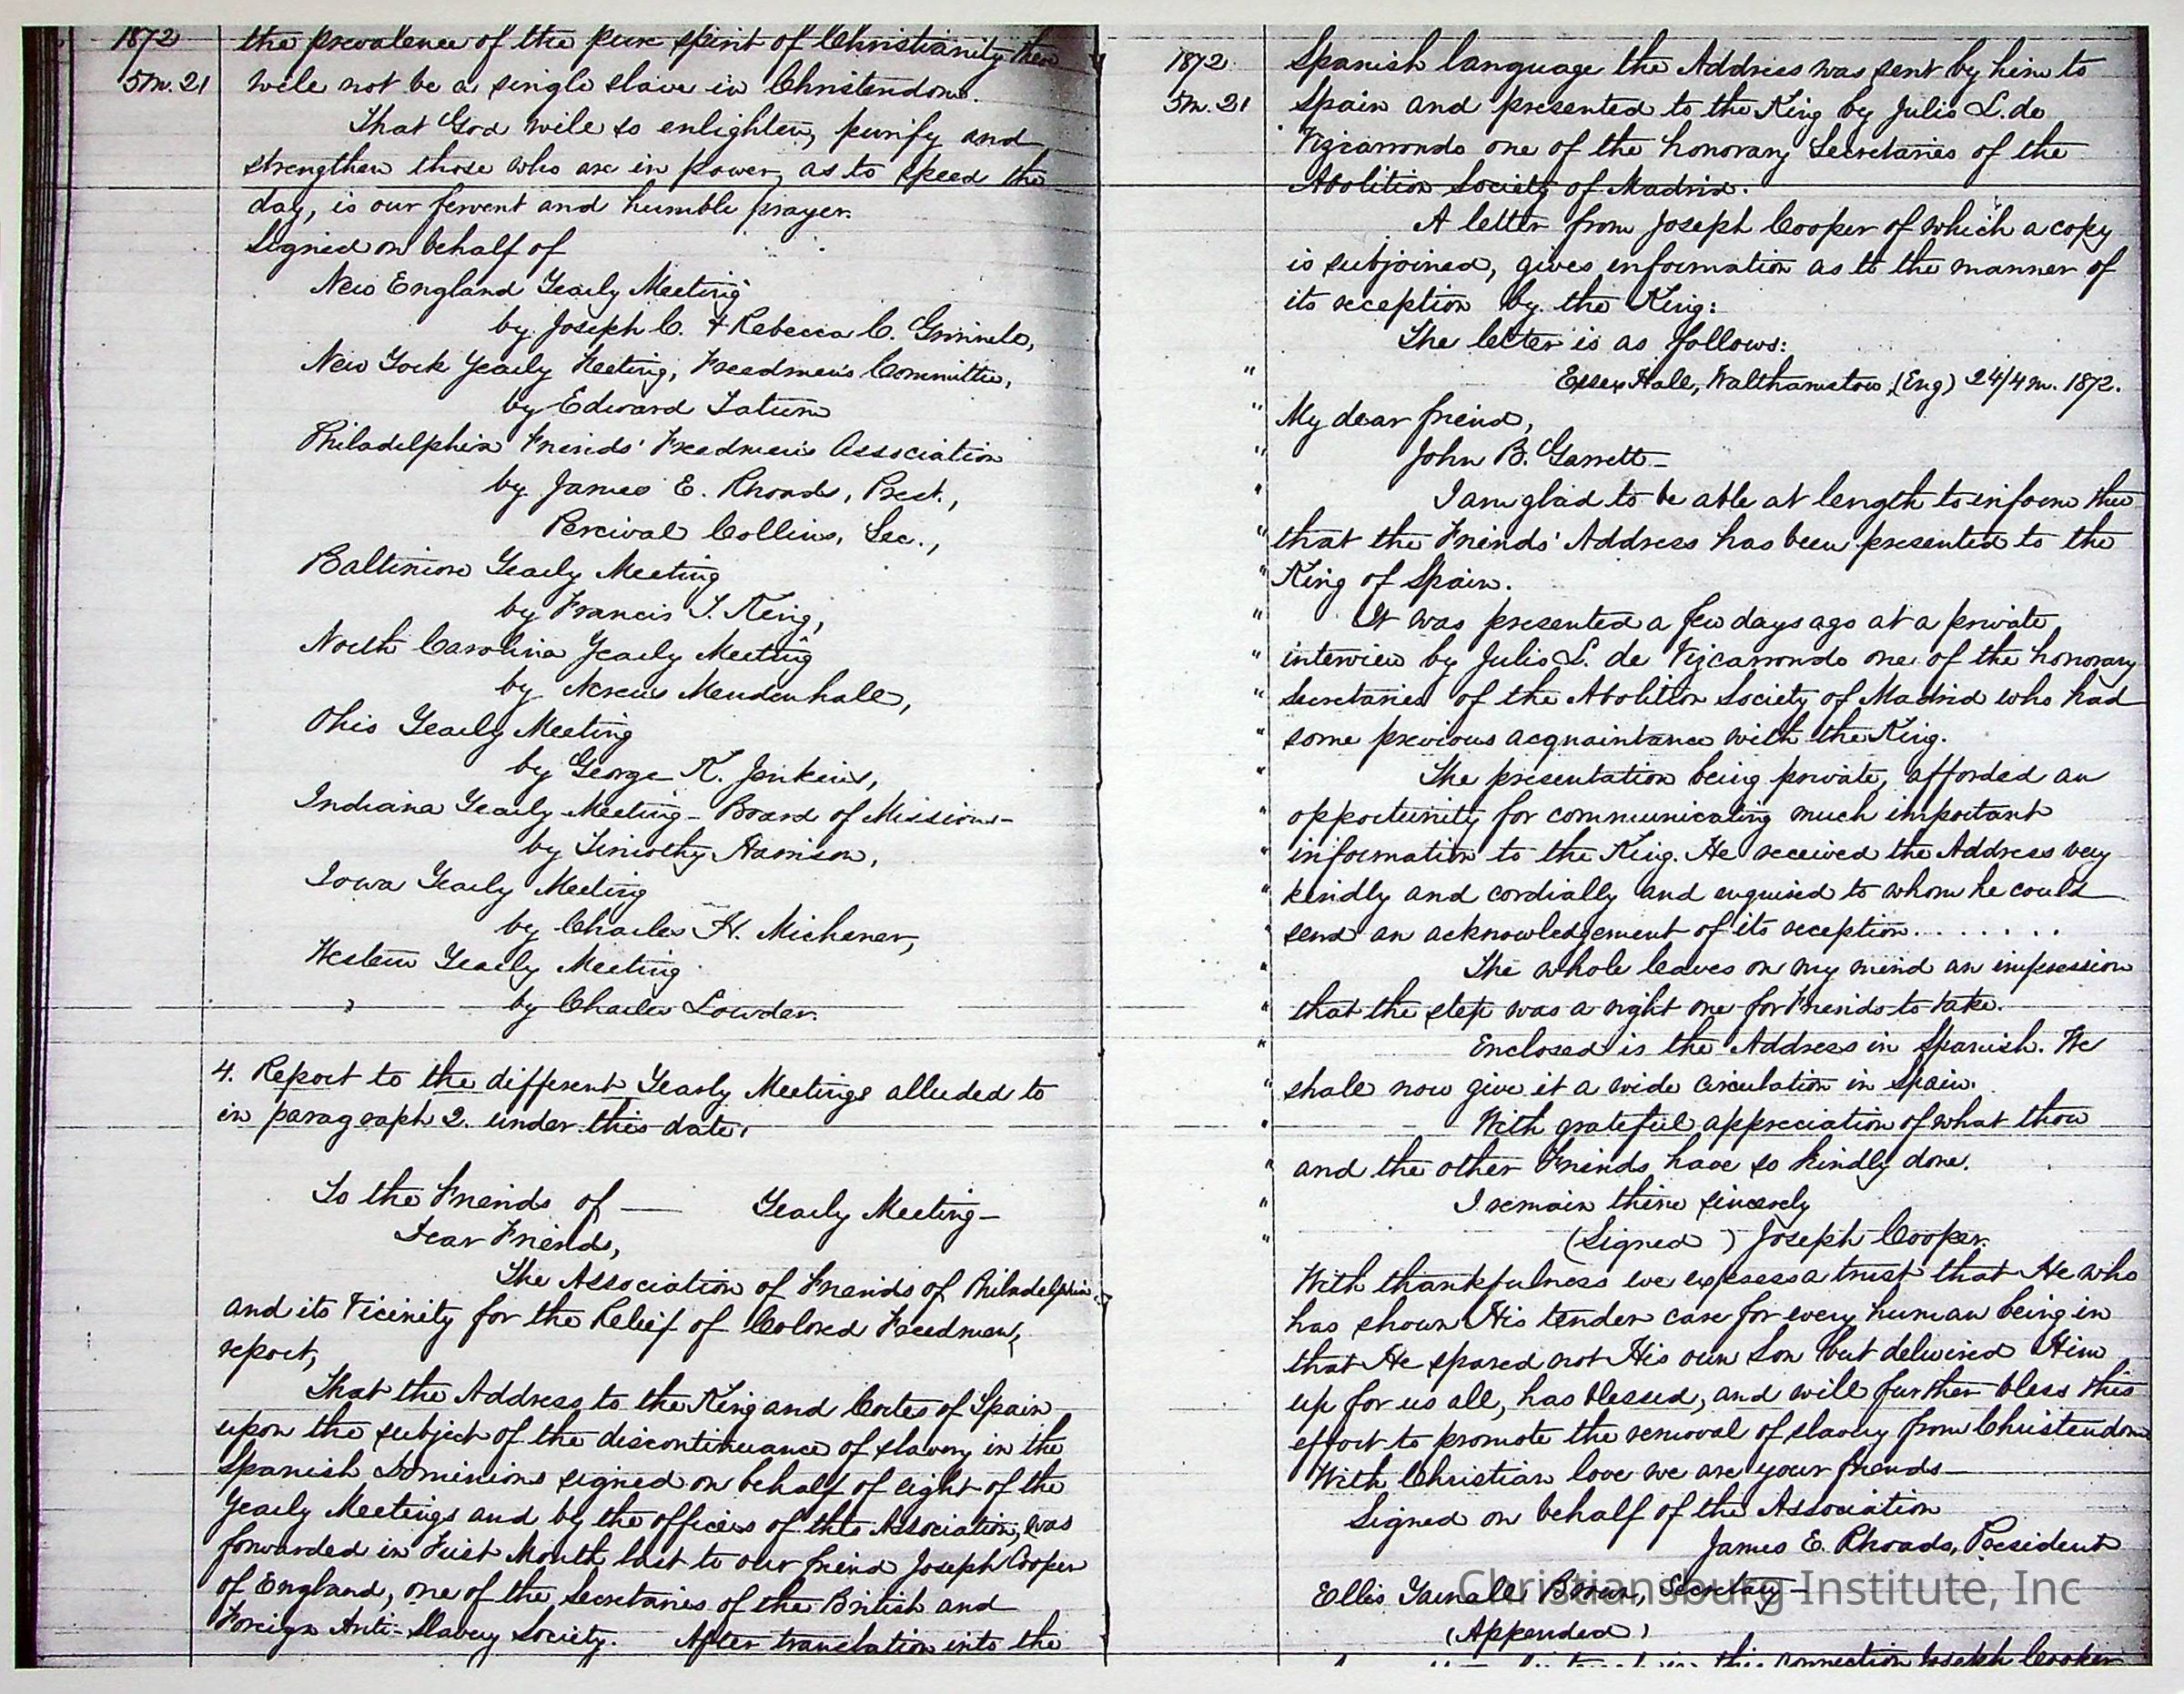 1872
5m. 21
the prevalence of the pure spirit of Christianity there
will not be a single slave in Christendom.
That God will so enlighten, purify and
strengthen those who are in power, as to speed the
day, is our fervent and humble prayer.
Signed on behalf of
New England Yearly Meeting
by Joseph C. & Rebecca C. Grinnell,
New York Yearly Meeting, Freedmen's Committee,
by Edward Tatum
Philadelphia Friends' Freedmen's Association
by James E. Rhoads, Prest.,
Percival Collins, Sec.,
Baltimore Yearly Meeting
by Francis T. King,
North Carolina Yearly Meeting
by Nereus Mendenhall,
Ohio Yearly Meeting
by George K. Jenkins,
Indiana Yearly Meeting - Board of Missions -
by Timothy Harrison,
Iowa Yearly Meeting
by Charles H. Michener,
Western Yearly Meeting
by Charles Lowder.
4. Report to the different Yearly Meetings alluded to
in paragraph 2. under this date.
To the Friends of — Yearly Meeting -
Dear Friends,
The Association of Friends of Philadelphia
and its Vicinity for the Relief of Colored Freedmen,
report,
That the Address to the King and Cortes of Spain
upon the subject of the discontinuance of slavery in the
Spanish Dominions signed on behalf of eight of the
Yearly Meetings and by the officers of this Association, was
forwarded in First Month last to our friend Joseph Cooper
of England, one of the Secretaries of the British and
Foreign Anti-Slavery Society. After translation into the
1872
5m. 21
Spanish language the Address was sent by him to
Spain and presented to the King by Julio L. de
Vizcarrondo one of the honorary Secretaries of the
Abolition Society of Madrid.
A letter from Joseph Cooper of which a copy
is subjoined, gives information as to the manner of
its reception by the King:
The letter is as follows:
" Essex Hall, Walthamstow, (Eng) 24/4m. 1872.
" My dear friend,
" John B. Garrett -
" I am glad to be able at length to inform thee
" that the Friends' Address has been presented to the
" King of Spain.
" It was presented a few days ago at a private
" interview by Julio L. de Vizcarrondo one of the honorary
" Secretaries of the Abolition Society of Madrid who had
" some previous acquaintance with the King.
" The presentation being private, afforded an
" opportunity for communicating much important
" information to the King. He received the Address very
" kindly and cordially and enquired to whom he could
" send an acknowledgement of its reception. . . . . . .
" The whole leaves on my mind an impression
" that the step was a right one for Friends to take.
" Enclosed is the Address in Spanish. We
" shall now give it a wide circulation in Spain.
" With grateful appreciation of what thou
" and the other Friends have so kindly done.
" I remain thine sincerely
" (Signed) Joseph Cooper.
With thankfulness we express a trust that He who
has shown His tender care for every human being in
that He spared not His own Son but delivered Him
up for us all, has blessed, and will further bless this
effort to promote the removal of slavery from Christendom
With Christian love we are your friends
Signed on behalf of the Association
James E. Rhoads, President
Ellis Yarnall Brown, Secretary -
Christiansburg Institute, Inc
(Appended)
this connection Joseph Cooper